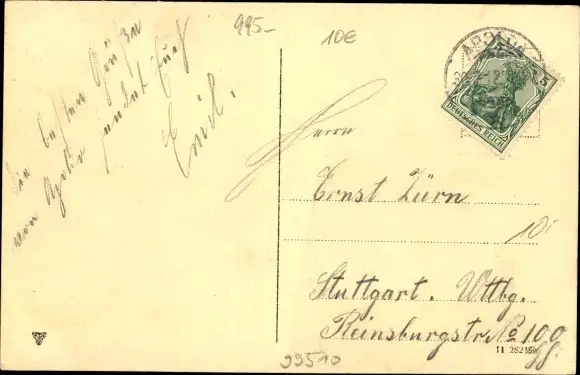 995-
10€
APOLDA
5
DEUTSCHES REICH
Die besten Grüße
von Apolda sendet Euch
Emil.
Herrn
Ernst Zürn
10.-
Stuttgart. Wttbg.
Reinsburgstr. No 100
11 282159
99510